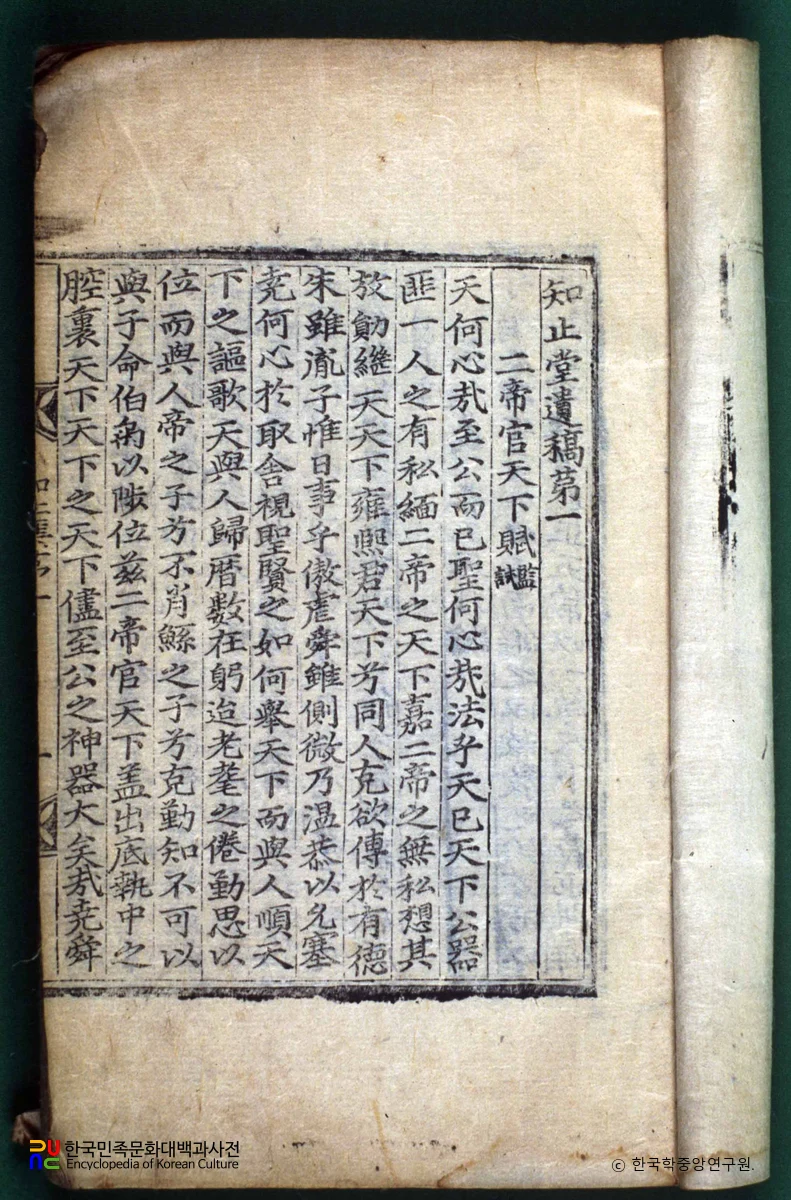 知止堂遺稿第一
二帝官天下賦 監試
天何心㢤至公而已聖何心㢤法乎天已天下公器
匪一人之有私緬二帝之天下嘉二帝之無私想其
放勛繼天天下雍熙君天下兮同人克欲傳於有德
朱雖胤子惟日事乎傲虐舜雖側微乃温恭以允塞
堯何心於取舍視聖賢之如何舉天下而與人順天
下之謳歌天與人歸曆數在躬迨老耄之倦勤思以
位而與人帝之子兮不肖鯀之子兮克勤知不可以
與子命伯禹以陟位茲二帝官天下盖出底執中之
腔裏天下天下之天下儘至公之神器大矣㢤堯舜
한국민족문화대백과사전
Encyclopedia of Korean Culture
ⓒ 한국학중앙연구원.